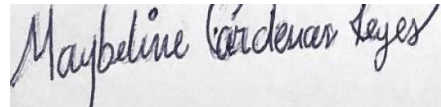 Maybeline Cárdenas Leyes